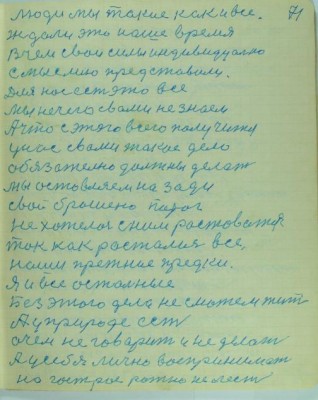 Люди мы такие как и все. 71
ждали это наше время
В чем свои силы индивидуално
с мыслию представили.
Для нас есть это все
мы нечего с вами не знаем
А что с этого всего получим
у нас с вами такое дело
обязателно должны делат
мы оставляем на зади
свой брошено
не хотелос с ним растоватся
так как расталис все,
наши прежние предки.
Я и все осталные
без этого дела не сможем жит
А у природе ест
о чем не говарит и не делат
А у себя лично воспринимат
на гострое рожно не лест